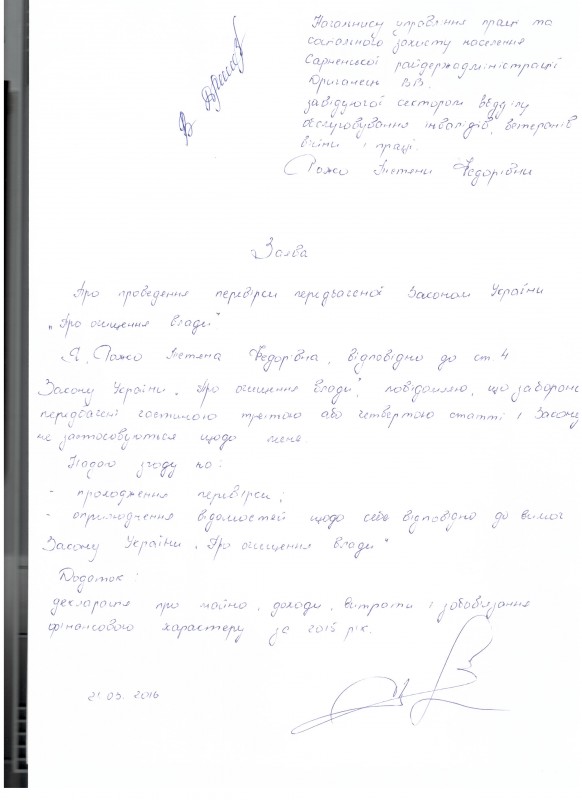 Начальнику управління праці та
соціального захисту населення
Сарненської райдержадміністрації
В.В.
завідуючої сектором відділу
обслуговування інвалідів, ветеранів
війни і праці.
Тетяни Федорівни
Заява
Про проведення перевірки передбаченої Законом України
„Про очищення влади"
Я, Тетяна Федорівна, відповідно до ст. 4
Закону України „Про очищення влади", повідомляю, що заборони
передбачені частиною третьою або четвертою статті 1 Закону
не застосовуються щодо мене.
Надаю згоду на:
- проходження перевірки;
- оприлюднення відомостей щодо себе відповідно до вимог
Закону України „Про очищення влади"
Додаток:
декларація про майно, доходи, витрати і зобов'язання
фінансового характеру за 2015 рік.
21 03. 2016